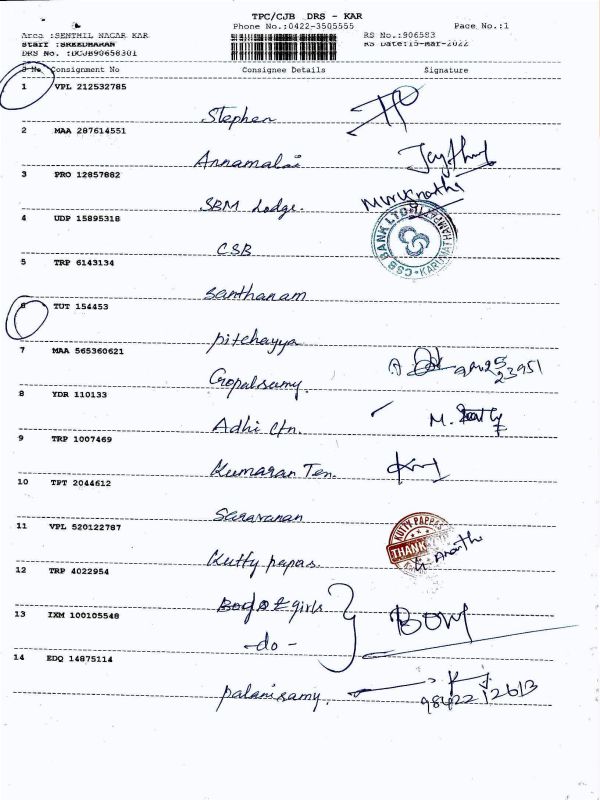 TPC/CJB DRS - KAR
Phone No.:0422-3505555 Page No.:1
Area :SENTHIL NAGAR KAR RS No.:906583
Staff :SREEDHARAN RS Date:15-Mar-2022
DRS No. :DCJB90658301
S No Consignment No Consignee Details Signature
1 VPL 212532785
Stephen
2 MAA 287614551
Annamalai
3 PRO 12857882
SBM Lodge
4 UDP 15895318
CSB
CSB BANK LTD
5 TRP 6143134
Santhanam
6 TUT 154453
pitchayya
7 MAA 565360621
Gopalsamy
8 YDR 110133
Adhi Ctn. M.
9 TRP 1007469
Kumaran Tex.
10 TPT 2044612
Saravanan
11 VPL 520122787
Kutty papas.
KUTTY PAPPAS
THANK
12 TRP 4022954
Boys & girls
13 IXM 100105548
-do-
14 EDQ 14875114
palanisamy.
9842212613